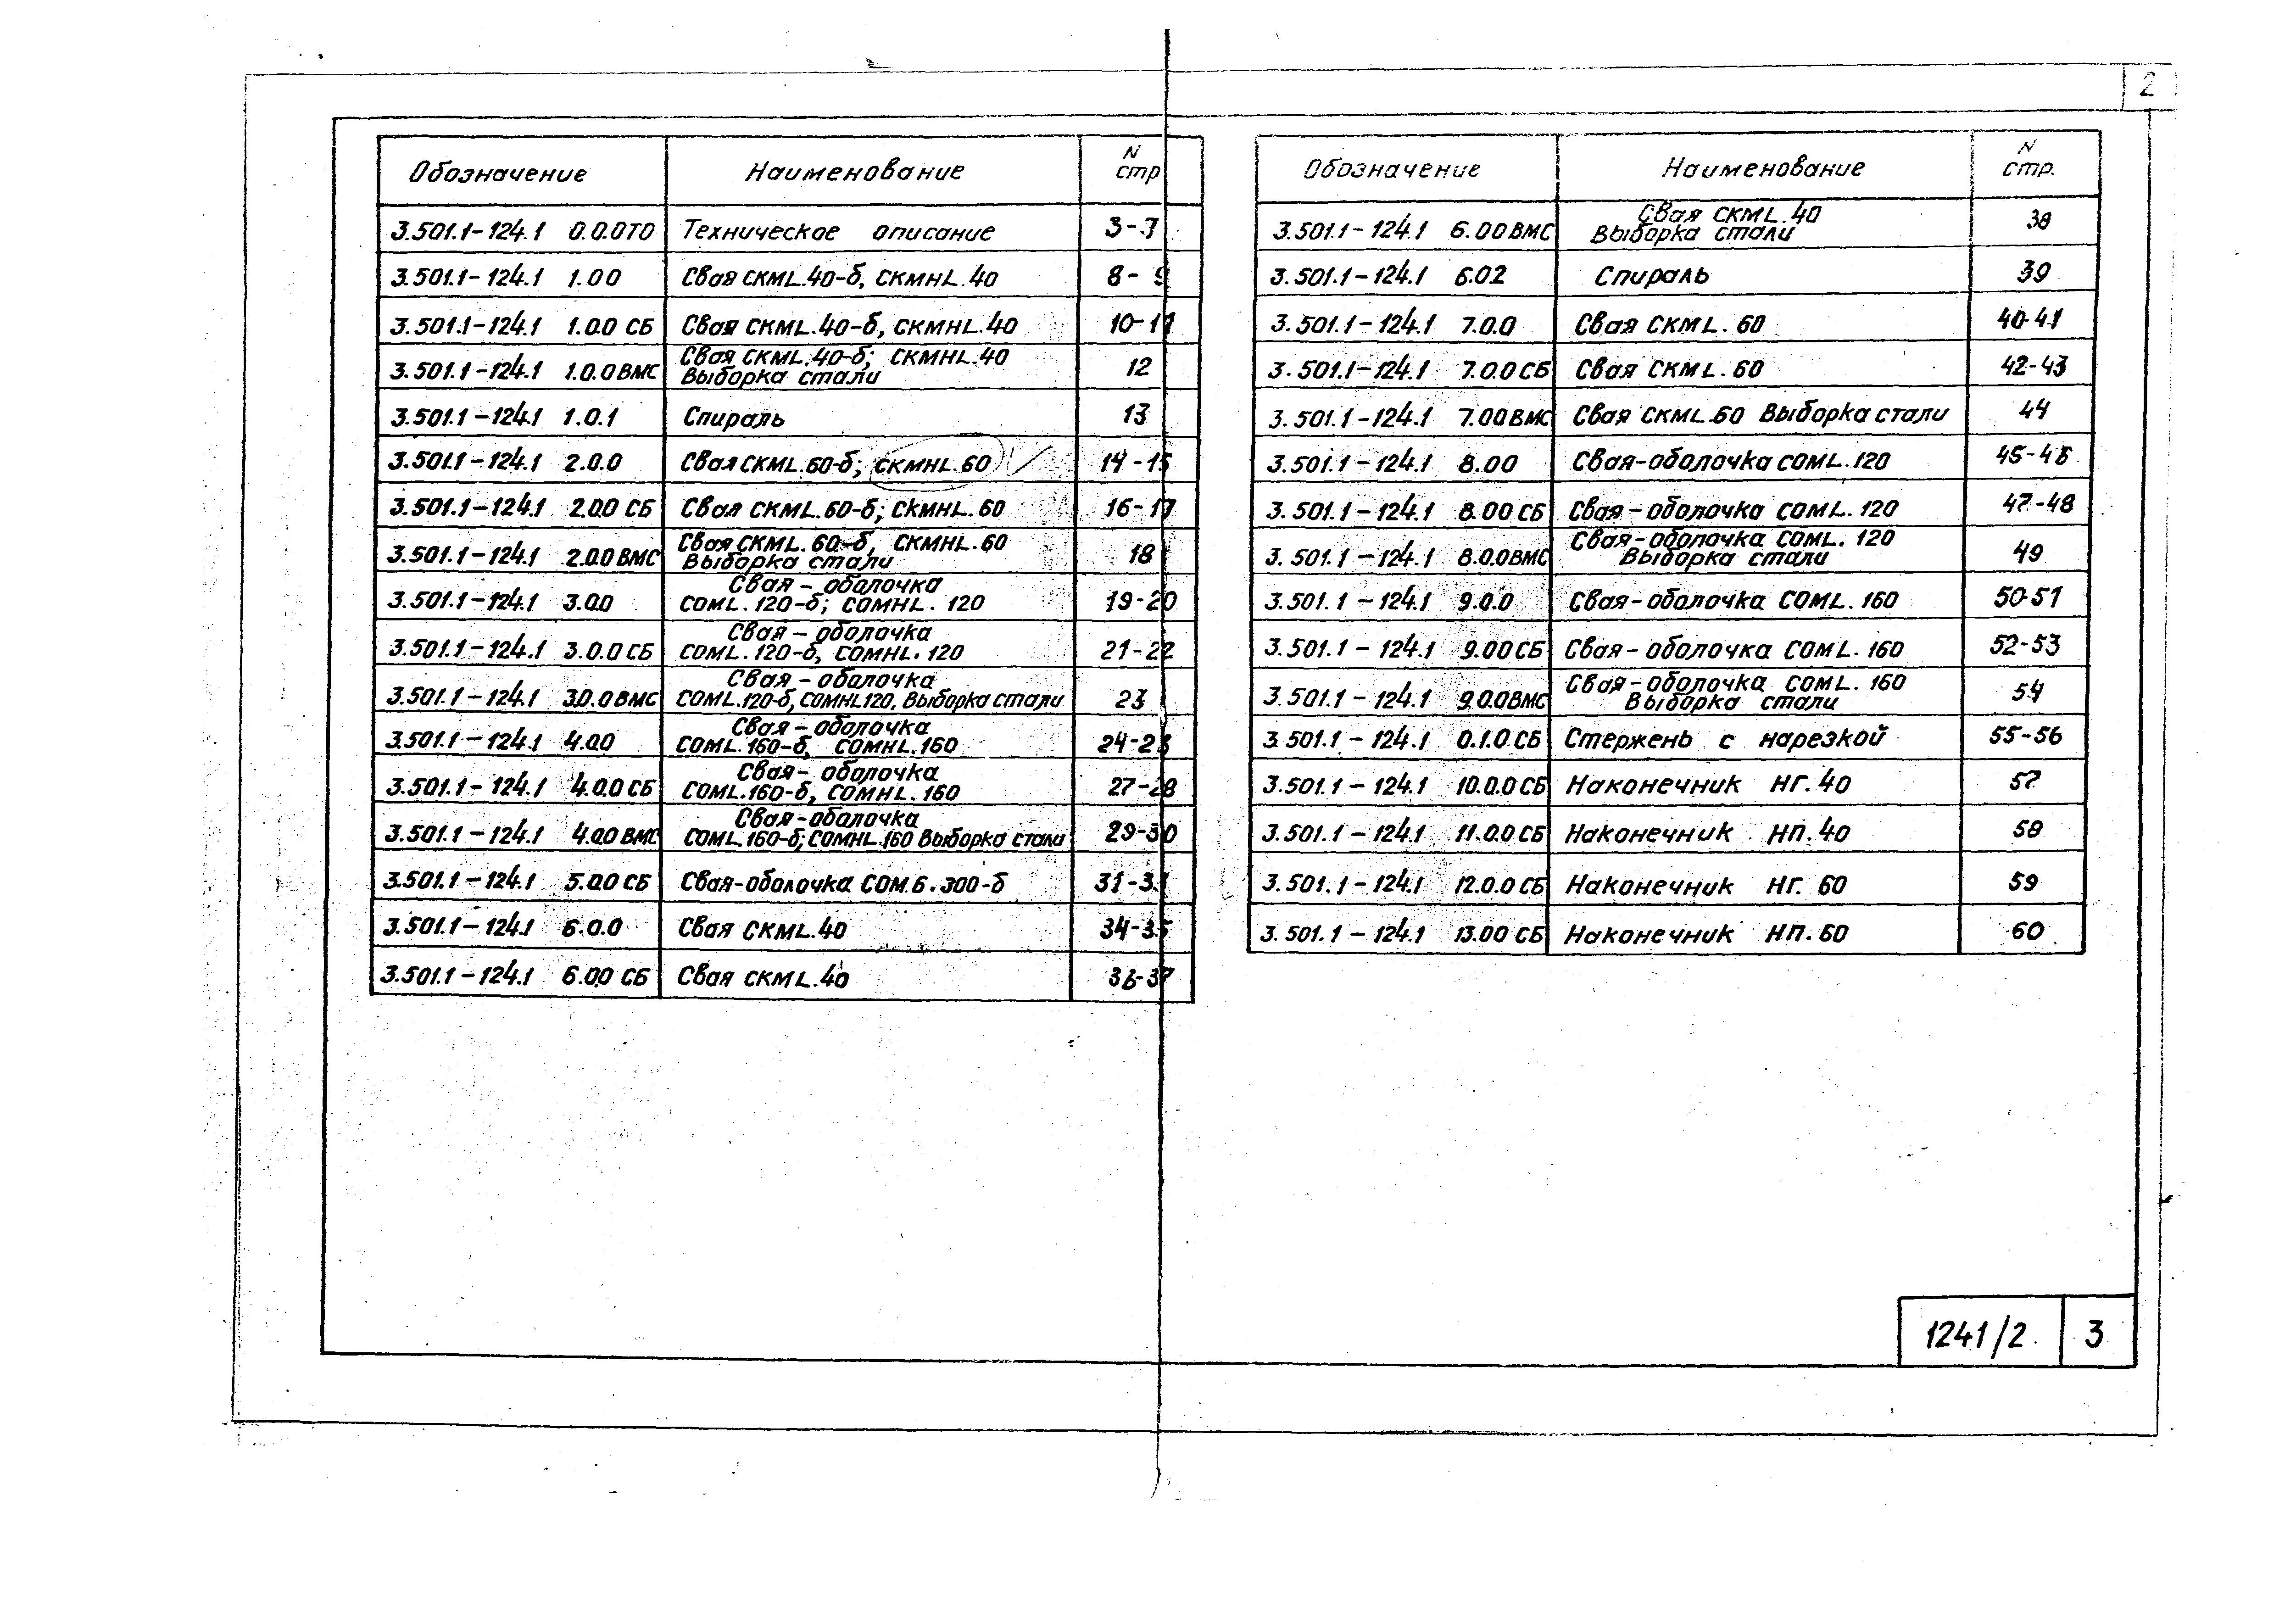 2
Обозначение Наименование N стр
3.501.1-124.1 0.0.0ТО Техническое описание 3-7
3.501.1-124.1 1.0.0 Свая СКМL.40-б, СКМНL.40 8-9
3.501.1-124.1 1.0.0 СБ Свая СКМL.40-б, СКМНL.40 10-11
Свая СКМL.40-б; СКМНL.40
3.501.1-124.1 1.0.0ВМС Выборка стали 12
3.501.1-124.1 1.0.1 Спираль 13
3.501.1-124.1 2.0.0 Свая СКМL.60-б; СКМНL.60 14-15
3.501.1-124.1 2.0.0 СБ Свая СКМL.60-б; СКМНL.60 16-17
Свая СКМL.60-б, СКМНL.60
3.501.1-124.1 2.0.0 ВМС Выборка стали 18
Свая-оболочка
3.501.1-124.1 3.0.0 СОМL.120-б; СОМНL.120 19-20
Свая-оболочка
3.501.1-124.1 3.0.0 СБ СОМL.120-б, СОМНL.120 21-22
Свая-оболочка
3.501.1-124.1 3.0.0 ВМС СОМL.120-б, СОМНL120, Выборка стали 23
Свая-оболочка
3.501.1-124.1 4.0.0 СОМL.160-б, СОМНL.160
Свая-оболочка
3.501.1-124.1 4.0.0 СБ СОМL.160-б, СОМНL.160 27-28
Свая-оболочка
3.501.1-124.1 4.0.0 ВМС СОМL.160-б; СОМНL.160 Выборка стали 29-30
3.501.1-124.1 5.0.0 СБ Свая-оболочка СОМ.6.300-б 31-33
3.501.1-124.1 6.0.0 Свая СКМL.40 34-35
3.501.1-124.1 6.0.0 СБ Свая СКМL.40 36-37
Обозначение Наименование N стр.
Свая СКМL.40
3.501.1-124.1 6.00 ВМС Выборка стали 38
3.501.1-124.1 6.02 Спираль 39
3.501.1-124.1 7.0.0 Свая СКМL.60 40-41
3.501.1-124.1 7.0.0 СБ Свая СКМL.60 42-43
3.501.1-124.1 7.00 ВМС Свая СКМL.60 Выборка стали 44
3.501.1-124.1 8.00 Свая-оболочка СОМL.120 45-46
3.501.1-124.1 8.00 СБ Свая-оболочка СОМL.120 47-48
Свая-оболочка СОМL.120
3.501.1-124.1 8.0.0ВМС Выборка стали 49
3.501.1-124.1 9.0.0 Свая-оболочка СОМL.160 50-51
3.501.1-124.1 9.00 СБ Свая-оболочка СОМL.160 52-53
Свая-оболочка СОМL.160
3.501.1-124.1 9.0.0ВМС Выборка стали 54
3.501.1-124.1 0.1.0 СБ Стержень с нарезкой 55-56
3.501.1-124.1 10.0.0 СБ Наконечник НГ.40 57
3.501.1-124.1 11.0.0 СБ Наконечник НП.40 58
3.501.1-124.1 12.0.0 СБ Наконечник НГ.60 59
3.501.1-124.1 13.00 СБ Наконечник НП.60 60
1241/2 3